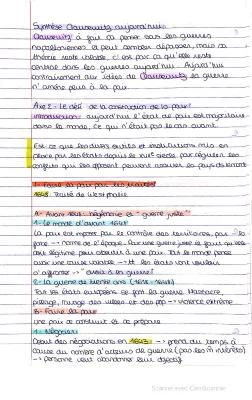 Synthèse Clausewitz aujourd'hui :
Clausewitz a fait sa pensé sur les guerres
napoléoniennes et peut sembler dépassée, mais sa
théorie reste
centrée dans les guerres aujourd'hui. Aujourd'hui
contrairement aux idées de Clausewitz la guerre
n'amène plus à la paix.
Axe 2 - Le défi de la construction de la paix
Introduction : aujourd'hui l'état de paix est majoritaire
dans le monde, ce qui n'était pas le cas avant.
Est-ce que les divers outils et institutions mis en
place par les états depuis le XVIIe siècle par réguler les
conflits qui les opposent peuvent assurer la paix
I - Faire la paix par les traités
1648 : Traité de Westphalie
A - Avant 1648 : hégémonie et "guerre juste"
1 - Le monde d'avant 1648
La paix est imposée par le contrôle des territoires, par la
force → norme de l'époque. Par une guerre juste il faut qu'elle
soit légitime pour aboutir à une paix. Tout le monde pense
avoir une cause valable → les états vont vouloir
s'affronter → "droit à la guerre"
2 - La guerre de trente ans (1618 - 1648)
Tout les états européens se font la guerre. Massacre,
pillage, des villes et des pop → violence extrême
B - Faire la paix
une paix se construit et se prépare
1 - Négocier
Début des négociations en 1643 → prend du temps à
cause du nombre d'acteurs de guerre (pas les m intérêts)
→ personne veut abandonner leur objectif
Scanné avec CamScanner